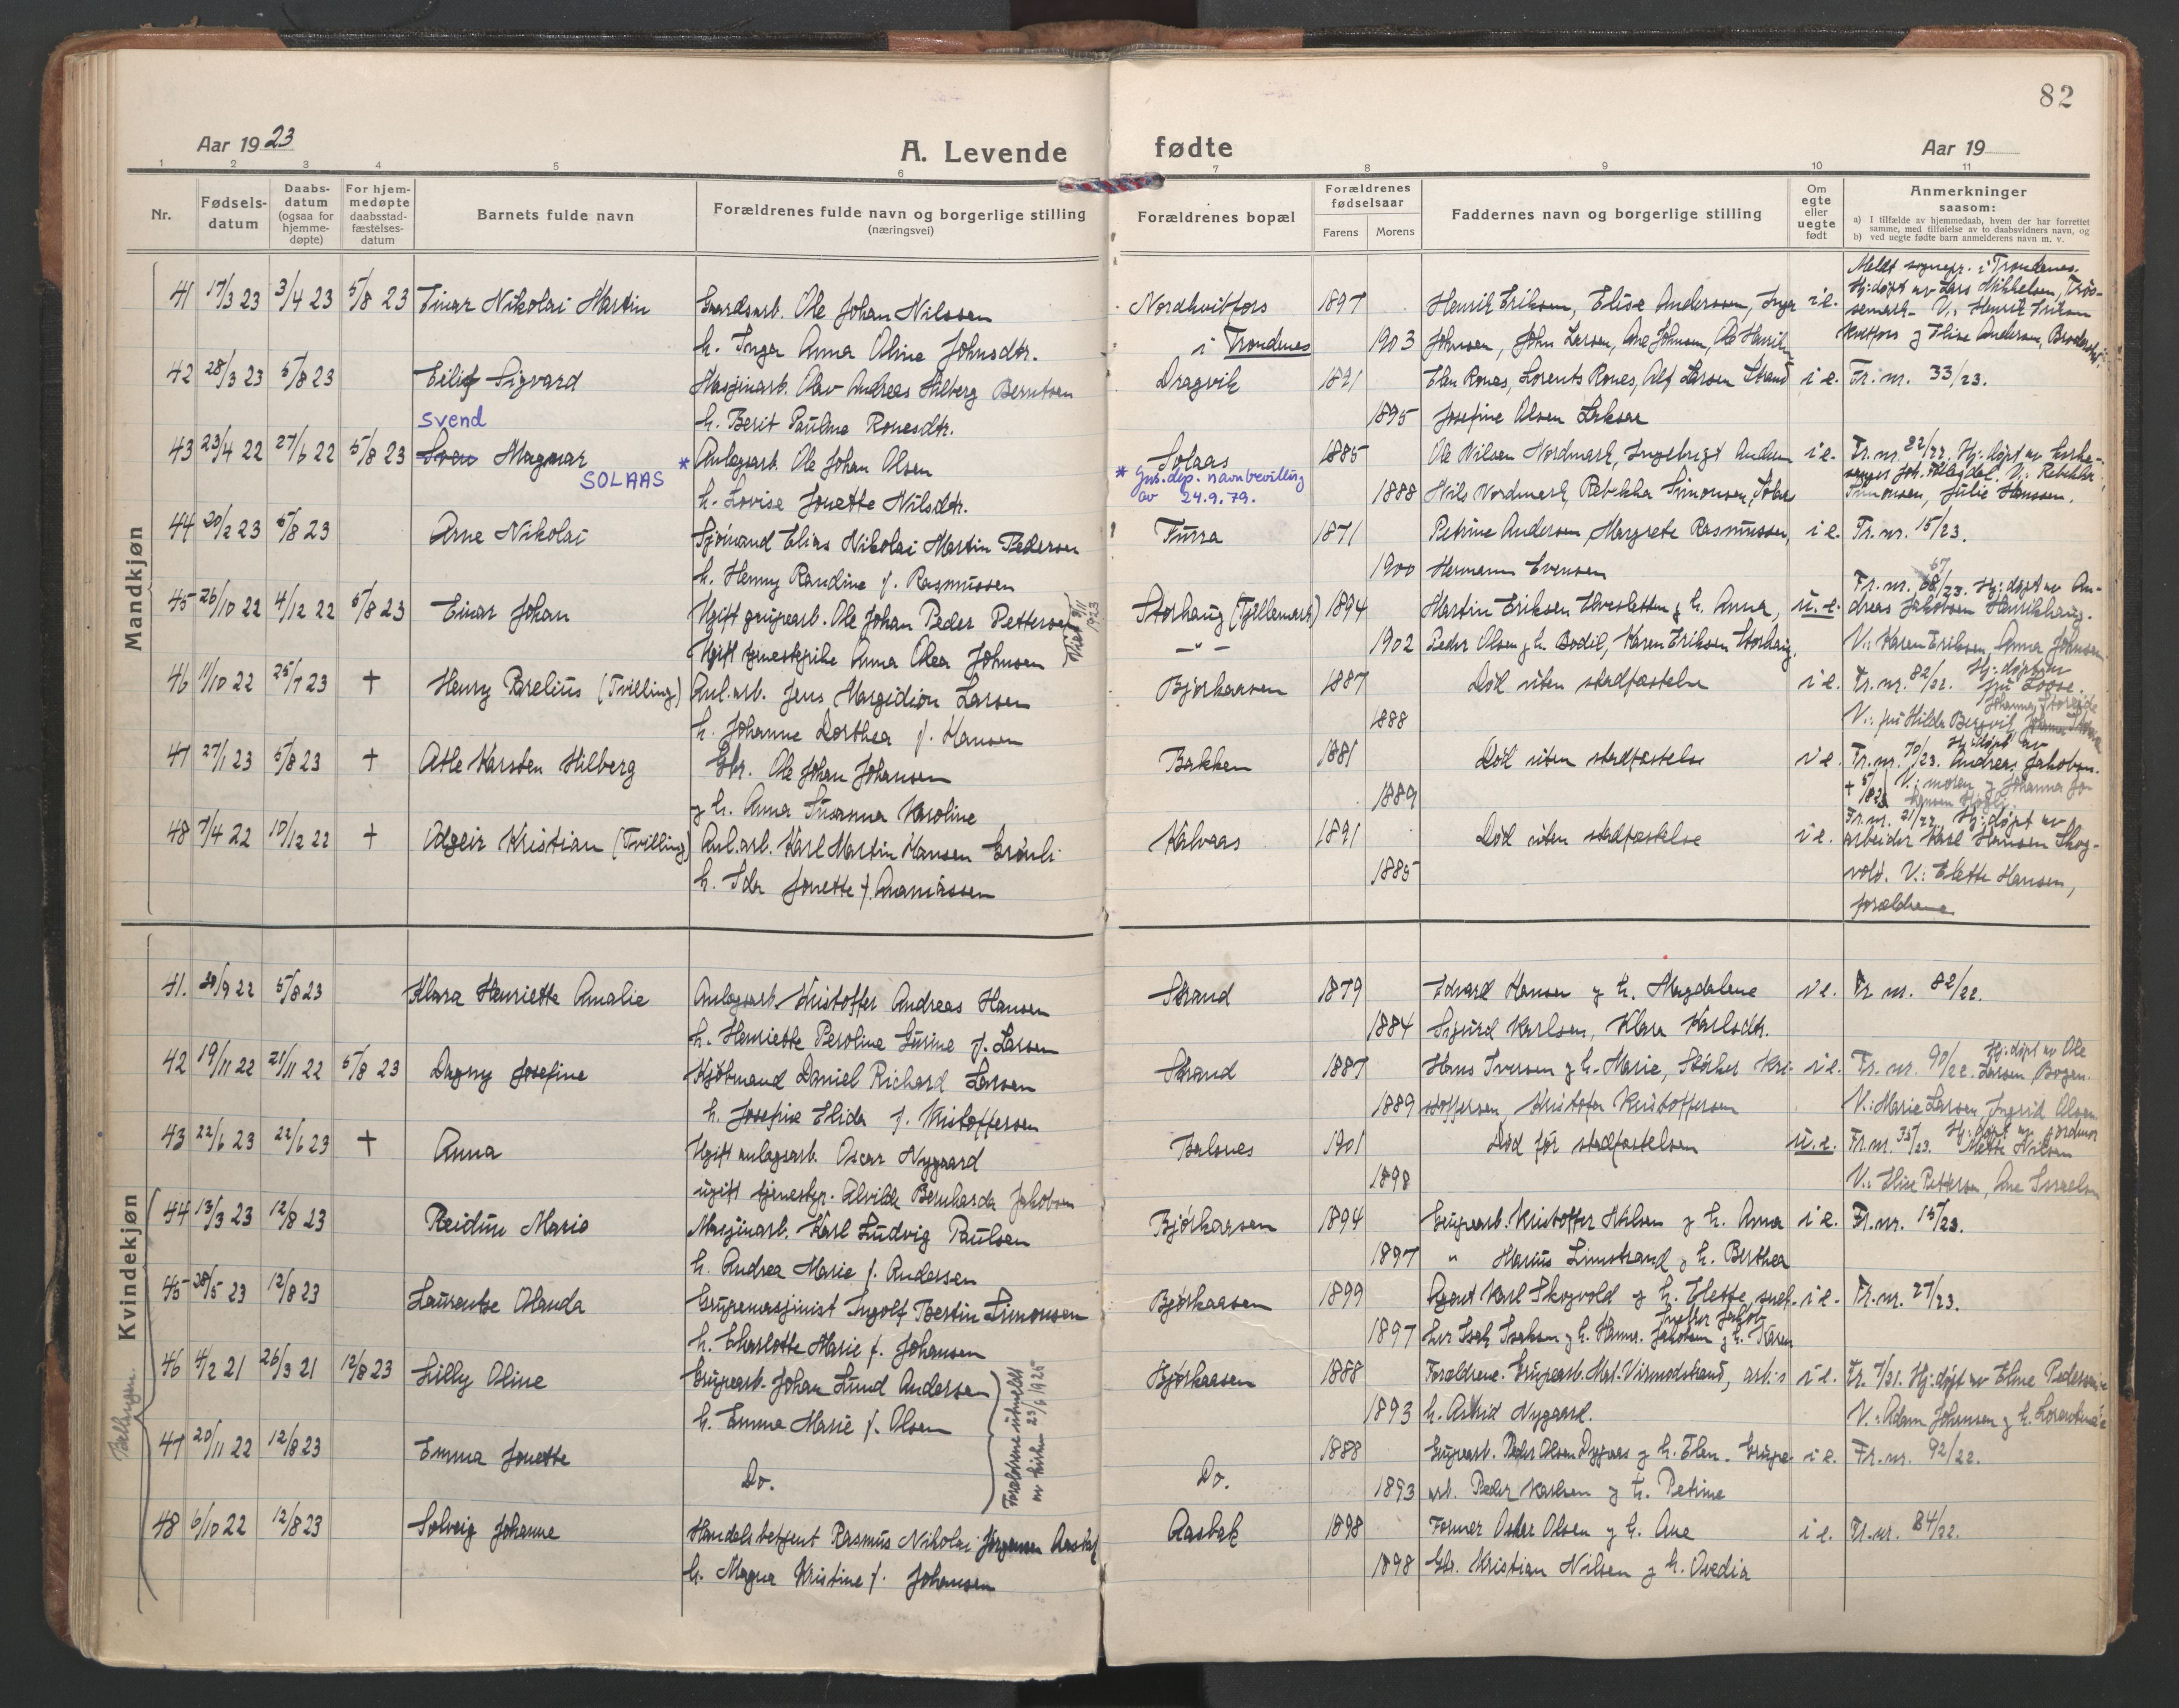 82
Aar 1923
A. Levende fødte
Aar 19
1 2 3 4 5 6 7 8 9 10 11
Nr.
Fødsels-
datum
Daabs-
datum
(ogsaa for
hjemme-
døpte)
For hjem-
medøpte
daabsstad-
fæstelses-
datum
Barnets fulde navn
Forældrenes fulde navn og borgerlige stilling
(næringsvei)
Forældrenes bopæl
Forældrenes
fødselsaar
Farens Morens
Faddernes navn og borgerlige stilling
Om
egte
eller
uegte
født
Anmerkninger
saasom:
a) I tilfælde av hjemmedaab, hvem der har forrettet
samme, med tilføielse av to daabsvidners navn, og
b) ved uegte fødte barn anmelderens navn m. v.
Mandkjøn
41 17/3 23 3/4 23 5/8 23 Einar Nikolai Martin Gaardsarb. Ole Johan Nilssen Nordkvitfors 1897 Henrik Eriksen, Elise Anderssen, Inga i e. Meldt sognepr. i Trondenes.
Hj:døpt av Lars Mikkelsen,
V.: Henrik Eriksen
h. Inga Anna Oline Johnsdtr. i Trondenes 1903 Johnsen, John Larsen, Ane Johnsen, Kvitfors og Elise Andersen,
42 28/3 23 5/8 23 Eilif Sigvard Masjinarb. Olav Andreas Hilberg Berntsen Dragvik 1891 Elen Rones, Lorents Rones, Alf Larsen Strand i e. Fr. nr. 33/23.
h. Berit Pauline Ronesdtr. 1895 Josefine Olsen
Svend
43 23/4 22 27/6 22 5/8 23 Sven Magnar * Anlægsarb. Ole Johan Olsen Solaas 1885 Ole Nilsen Nordmark, Ingebrigt Andersen i e. Fr. nr. 22/22. Hj:døpt av
SOLAAS
* Jus.dep. navnbevilling
av 24.9.79.
h. Lovise Jonette Nilsdtr. 1888 Nils Nordmark, Rebekka Simonsen, Solaas V.: Rebekka
Simonsen, Julie Hanssen.
44 20/2 23 5/8 23 Arne Nikolai Sjømand Elias Nikolai Martin Pedersen Furra 1871 Petrine Andersen, Margrete Rasmussen, i e. Fr. nr. 15/23.
h. Henny Randine f. Rasmussen 1900 Hermann Evensen
45 26/10 22 4/12 22 5/8 23 Einar Johan Ugift grupearb. Ole Johan Peder Pettersen Storhaug (Tjeldemark) 1894 Martin Eriksen og h. Anna, u. e. Fr. nr. 68/23. Hj:døpt av An-
dreas Jakobsen Henrikhaug.
Ugift tjenestepike Anna Olea Johnsen - " - 1902 Peder Olsen og h. Bodil, Karen Eriksen Storhaug. V.: Karen Eriksen, Anna Johnsen
Viet 4/11
1923
46 11/10 22 25/7 23 † Henry Parelius (Tvilling) Anl.arb. Jens Margidion Larsen Bjørkaasen 1887 Død uten stadfæstelse i e. Fr. nr. 82/22. Hj:døpt av
fru Loose.
h. Johanne Dorthea f. Hansen 1888 V.: fru Hilda Bergvik,
47 27/1 23 5/8 23 † Atle Karsten Hilberg Gbr. Ole Johan Johansen Bakken 1881 Død uten stadfæstelse i e. Fr. nr. 70/23. Hj:døpt av
Andreas Jakobsen.
og h. Anna Susanna Karoline 1889 V.: moren og Johanna Jo-
hansen
48 7/4 22 10/12 22 † Asgeir Kristian (Tvilling) Anl.arb. Karl Martin Hansen Grønli Kalvaas 1891 Død uten stadfæstelse i e. Fr. nr. 21/22. Hj:døpt av
arbeider Karl Hansen Skog-
h. Ida Jonette f. Ananiassen 1885 vold. V.: Elette Hansen,
forældrene
Kvindekjøn
41. 30/9 22 5/8 23 Klara Henriette Amalie Anlægsarb. Kristoffer Andreas Hansen Strand 1879 Edvard Hansen og h. Magdalene i e. Fr. nr. 82/22.
h. Henriette Peroline Gurine f. Larsen 1884 Sigurd Karlsen, Klara Karlsdtr.
42 19/11 22 21/11 22 5/8 23 Dagny Josefine Kjøbmand Daniel Richard Larsen Strand 1887 Hans Iversen og h. Marie, Kri- i e. Fr. nr. 90/22. Hj:døpt av Ole
Larsen, Bogen.
h. Josefine Elida f. Kristoffersen 1889 stoffersen, Kristofer Kristoffersen V.: Marie Larsen, Ingrid Olsen
43 22/6 23 22/6 23 † Anna Ugift anlægsarb. Oscar Nygaard Balsnes 1901 Død før stadfæstelsen u. e. Fr. nr. 35/23. Hj:døpt av jordmor
Mette Nilsen
ugift tjenestep. Alvilde Bernharda Jakobsen 1898 V.: Elise Pettersen, Ane Israelsen
44 13/3 23 12/8 23 Reidun Marie Masjinarb. Karl Ludvig Paulsen Bjørkaasen 1894 Grupearb. Kristoffer Nilsen og h. Anna i e. Fr. nr. 15/23.
h. Andrea Marie f. Andersen 1897 " Marius Limstrand og h. Berthea
45 28/5 23 12/8 23 Laurentse Olanda Grupemasjinist Ingolf Bertin Simonsen Bjørkaasen 1899 Agent Karl Skogvold og h. Elette, sned- i e. Fr. nr. 27/23.
h. Charlotte Marie f. Johansen 1897 ker Isak Isaksen og h. Hanna. Jakobsen og h. Karen
Ballangen.
46 4/2 21 26/3 21 12/8 23 Lilly Oline Grupearb. Johan Lund Andersen Bjørkaasen 1888 Forældrene. Grupearb. Virmodstrand, i e. Fr. 7/21. Hj:døpt av Eline Pedersen
h. Emma Marie f. Olsen 1893 h. Astrid Nygaard. V.: Adam Johansen og h. Lorentine
Forældrene utmeldt
av kirken 23/6 1925
47 20/11 22 12/8 23 Emma Jonette Do. Do. 1888 Grupearb. Peder Olsen og h. Elen. Grupe- i e. Fr. nr. 92/22.
1893 arb. Peder Karlsen og h. Petrine
48 6/10 22 12/8 23 Solveig Johanne Handelsbetjent Rasmus Nikolai Jørgensen Aasbak Aasbak 1898 Former Oskar Olsen og h. Ane i e. Fr. nr. 84/22.
h. Magna Kristine f. Johansen 1898 Gbr. Kristian Nilsen og h. Ovedia